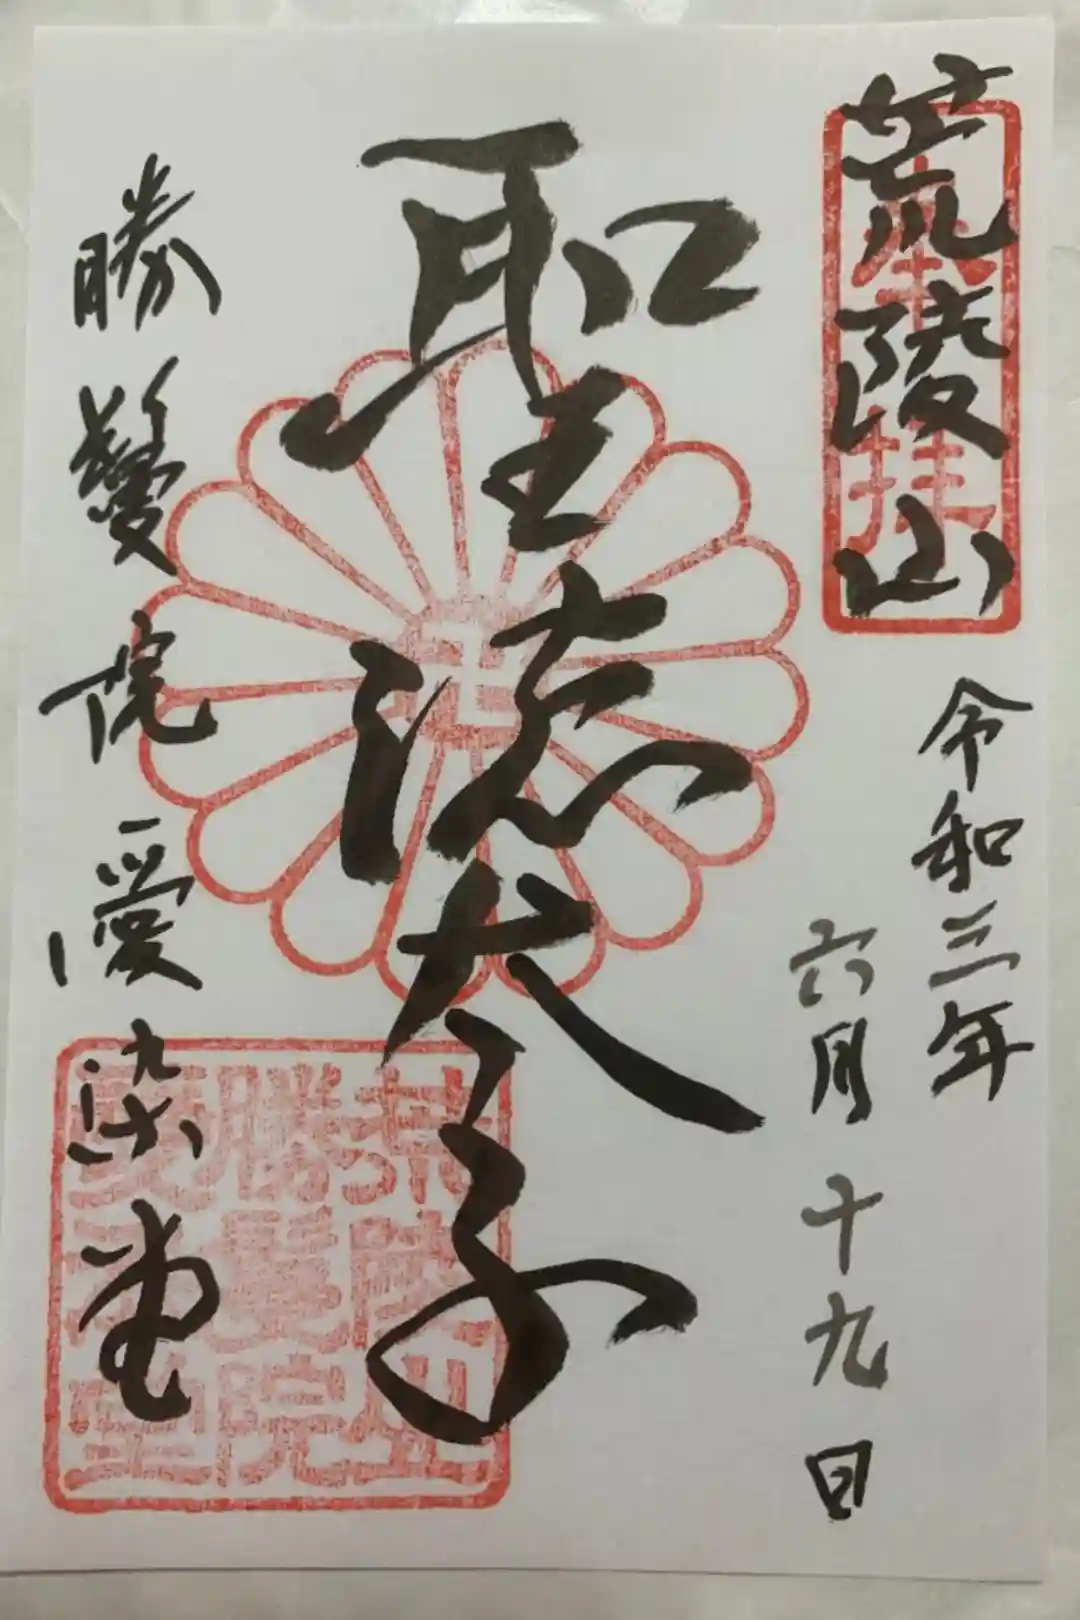 奉拝
荒陵山
令和三年
六月十九日
聖徳太子
勝鬘院愛染堂
卍
荒陵山
勝鬘院
愛染堂